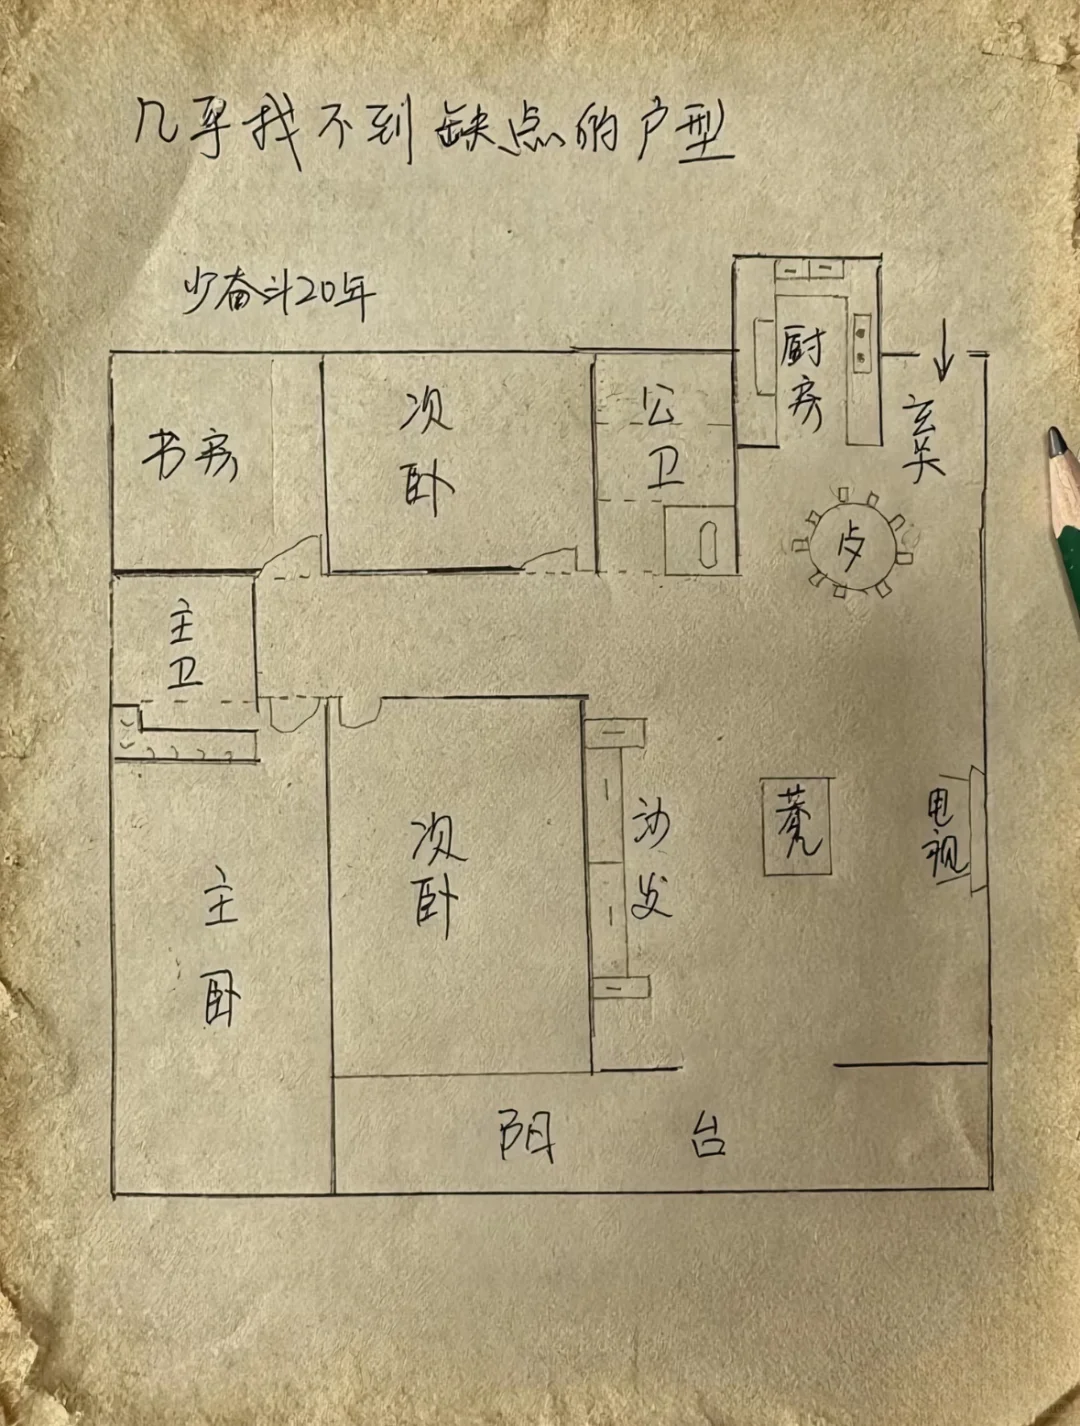 几乎找不到缺点的户型
少奋斗20年
厨房
玄关
书房
次卧
公卫
主卫
沙发
茶几
电视
次卧
主卧
阳台